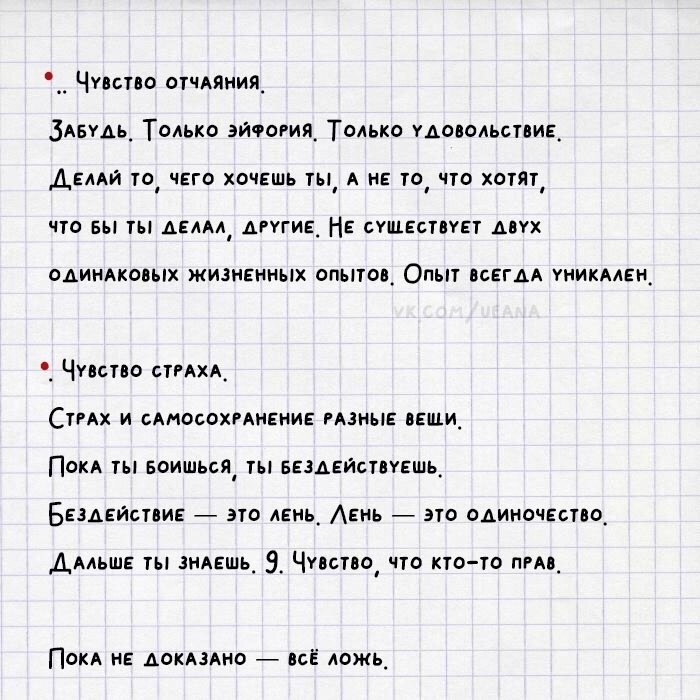 •.. Чувство отчаяния.
Забудь. Только эйфория. Только удовольствие.
Делай то, чего хочешь ты, а не то, что хотят,
что бы ты делал, другие. Не существует двух
одинаковых жизненных опытов. Опыт всегда уникален.
vk.com/ueana
•. Чувство страха.
Страх и самосохранение разные вещи.
Пока ты боишься, ты бездействуешь.
Бездействие — это лень. Лень — это одиночество.
Дальше ты знаешь. 9. Чувство, что кто-то прав.
Пока не доказано — всё ложь.